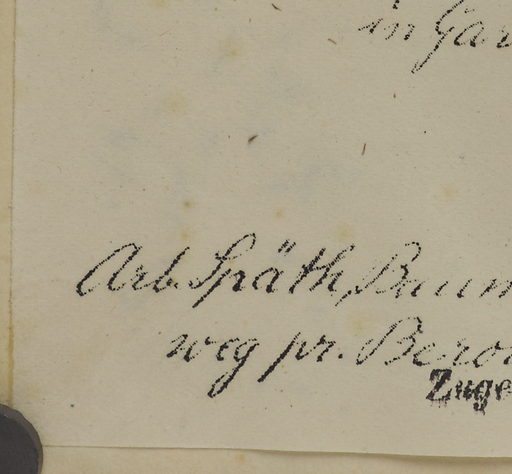 in Gar
Arb. Späth, Baum
weg pr. Bero
Zuge